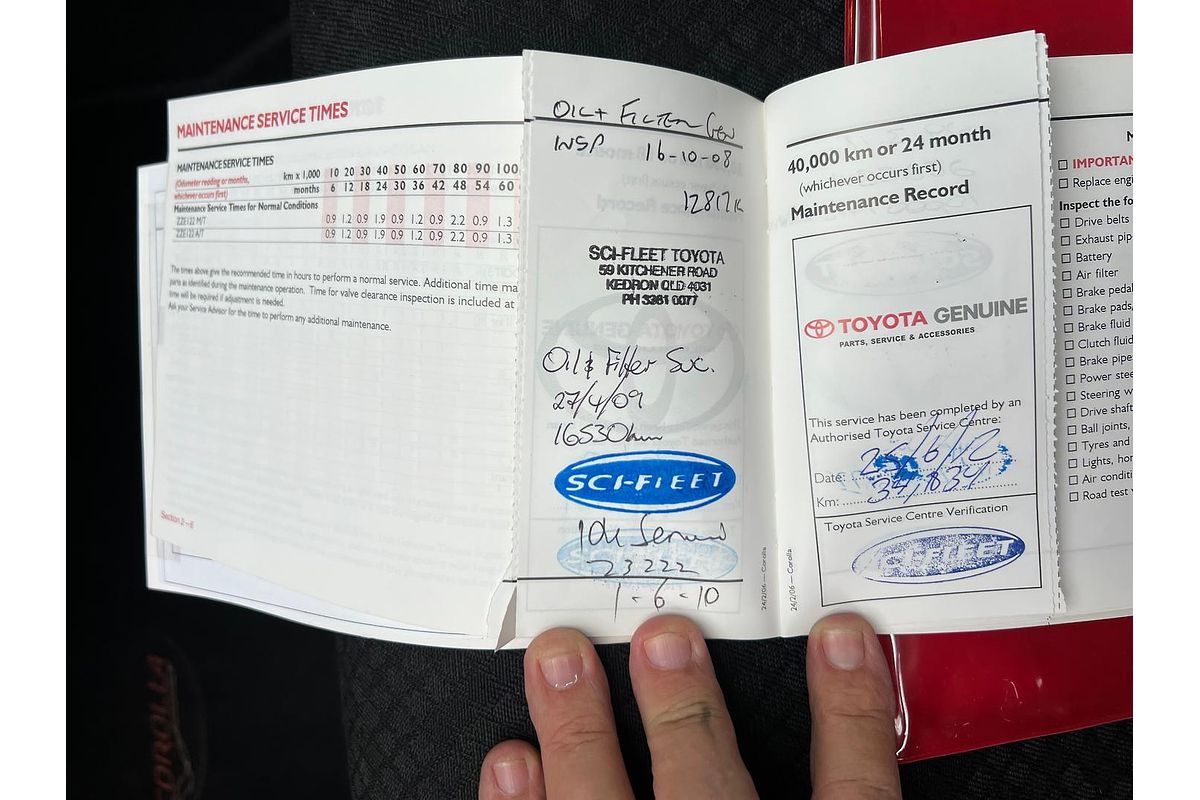 MAINTENANCE SERVICE TIMES
MAINTENANCE SERVICE TIMES
(Odometer reading or months, whichever occurs first)
km x 1,000 10 20 30 40 50 60 70 80 90 100
months 6 12 18 24 30 36 42 48 54 60
Maintenance Service Times for Normal Conditions
ZZE122 M/T 0.9 1.2 0.9 1.9 0.9 1.2 0.9 2.2 0.9 1.3
ZZE122 A/T 0.9 1.2 0.9 1.9 0.9 1.2 0.9 2.2 0.9 1.3
The times above give the recommended time in hours to perform a normal service. Additional time ma
parts as identified during the maintenance operation. Time for valve clearance inspection is included at
time will be required if adjustment is needed.
Ask your Service Advisor for the time to perform any additional maintenance.
Section 2 – 6
OIL + FILTER GEN
INSP 16-10-08
12817k
SCI-FLEET TOYOTA
59 KITCHENER ROAD
KEDRON QLD 4031
PH 3361 0077
Oil & Filter Svc.
27/4/09
16530km
SCI-FLEET
10k Service
23222
1-6-10
24/2/06 — Corolla
24/2/06 — Corolla
40,000 km or 24 month
(whichever occurs first)
Maintenance Record
TOYOTA GENUINE
PARTS, SERVICE & ACCESSORIES
This service has been completed by an
Authorised Toyota Service Centre:
Date: 25/6/12
Km: 34,834
Toyota Service Centre Verification
SCI-FLEET
M
IMPORTAN
Replace engi
Inspect the fo
Drive belts
Exhaust pip
Battery
Air filter
Brake pedal
Brake pads,
Brake fluid
Clutch fluid
Brake pipe
Power stee
Steering w
Drive shaft
Ball joints,
Tyres and
Lights, hor
Air conditi
Road test
COROLLA